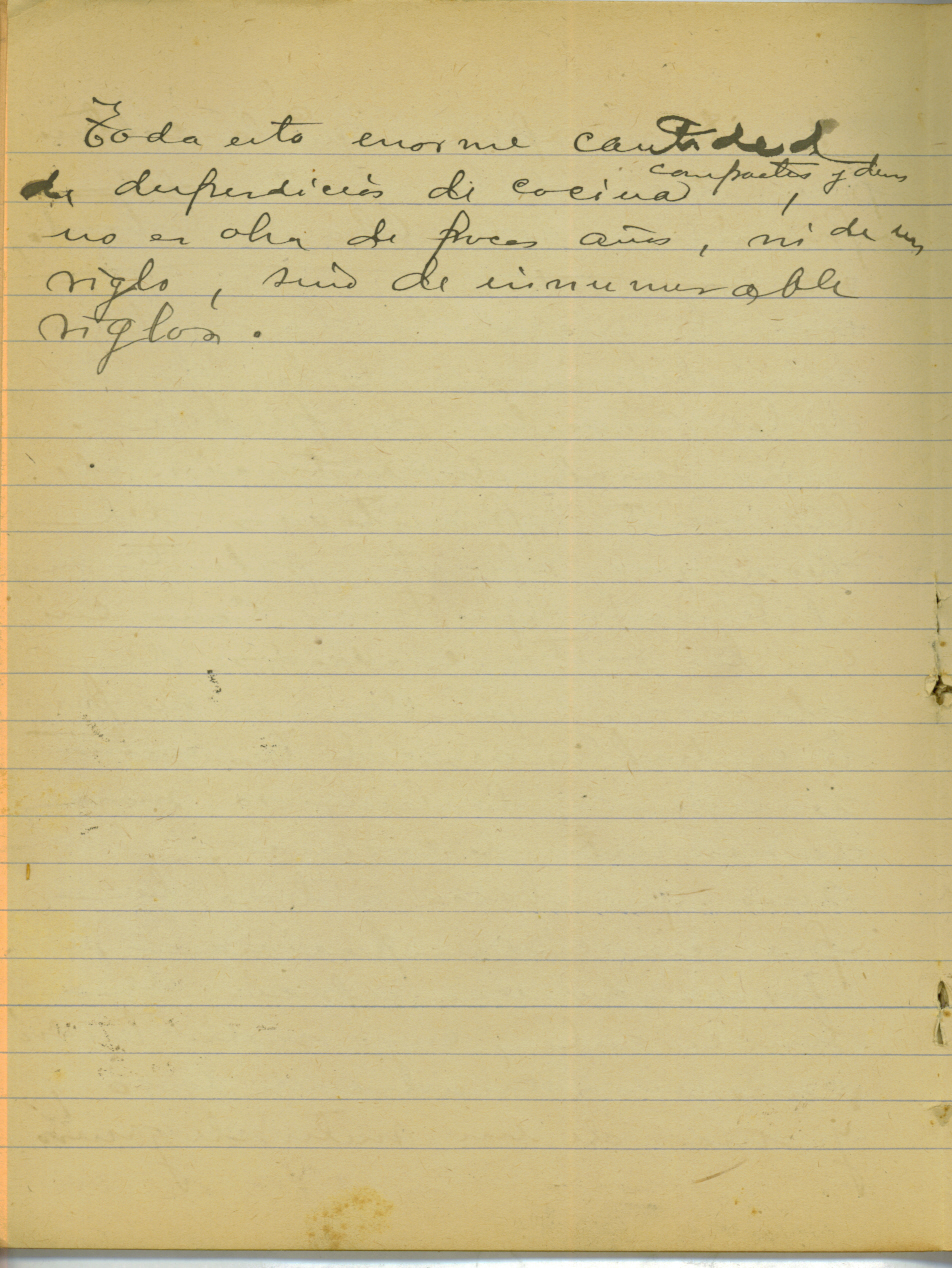 Toda esto enorme cantidad
de desperdicios de cocina compactos y dens ,
no es obra de pocos años, ni de un
siglo, sino de innumerable
siglos.